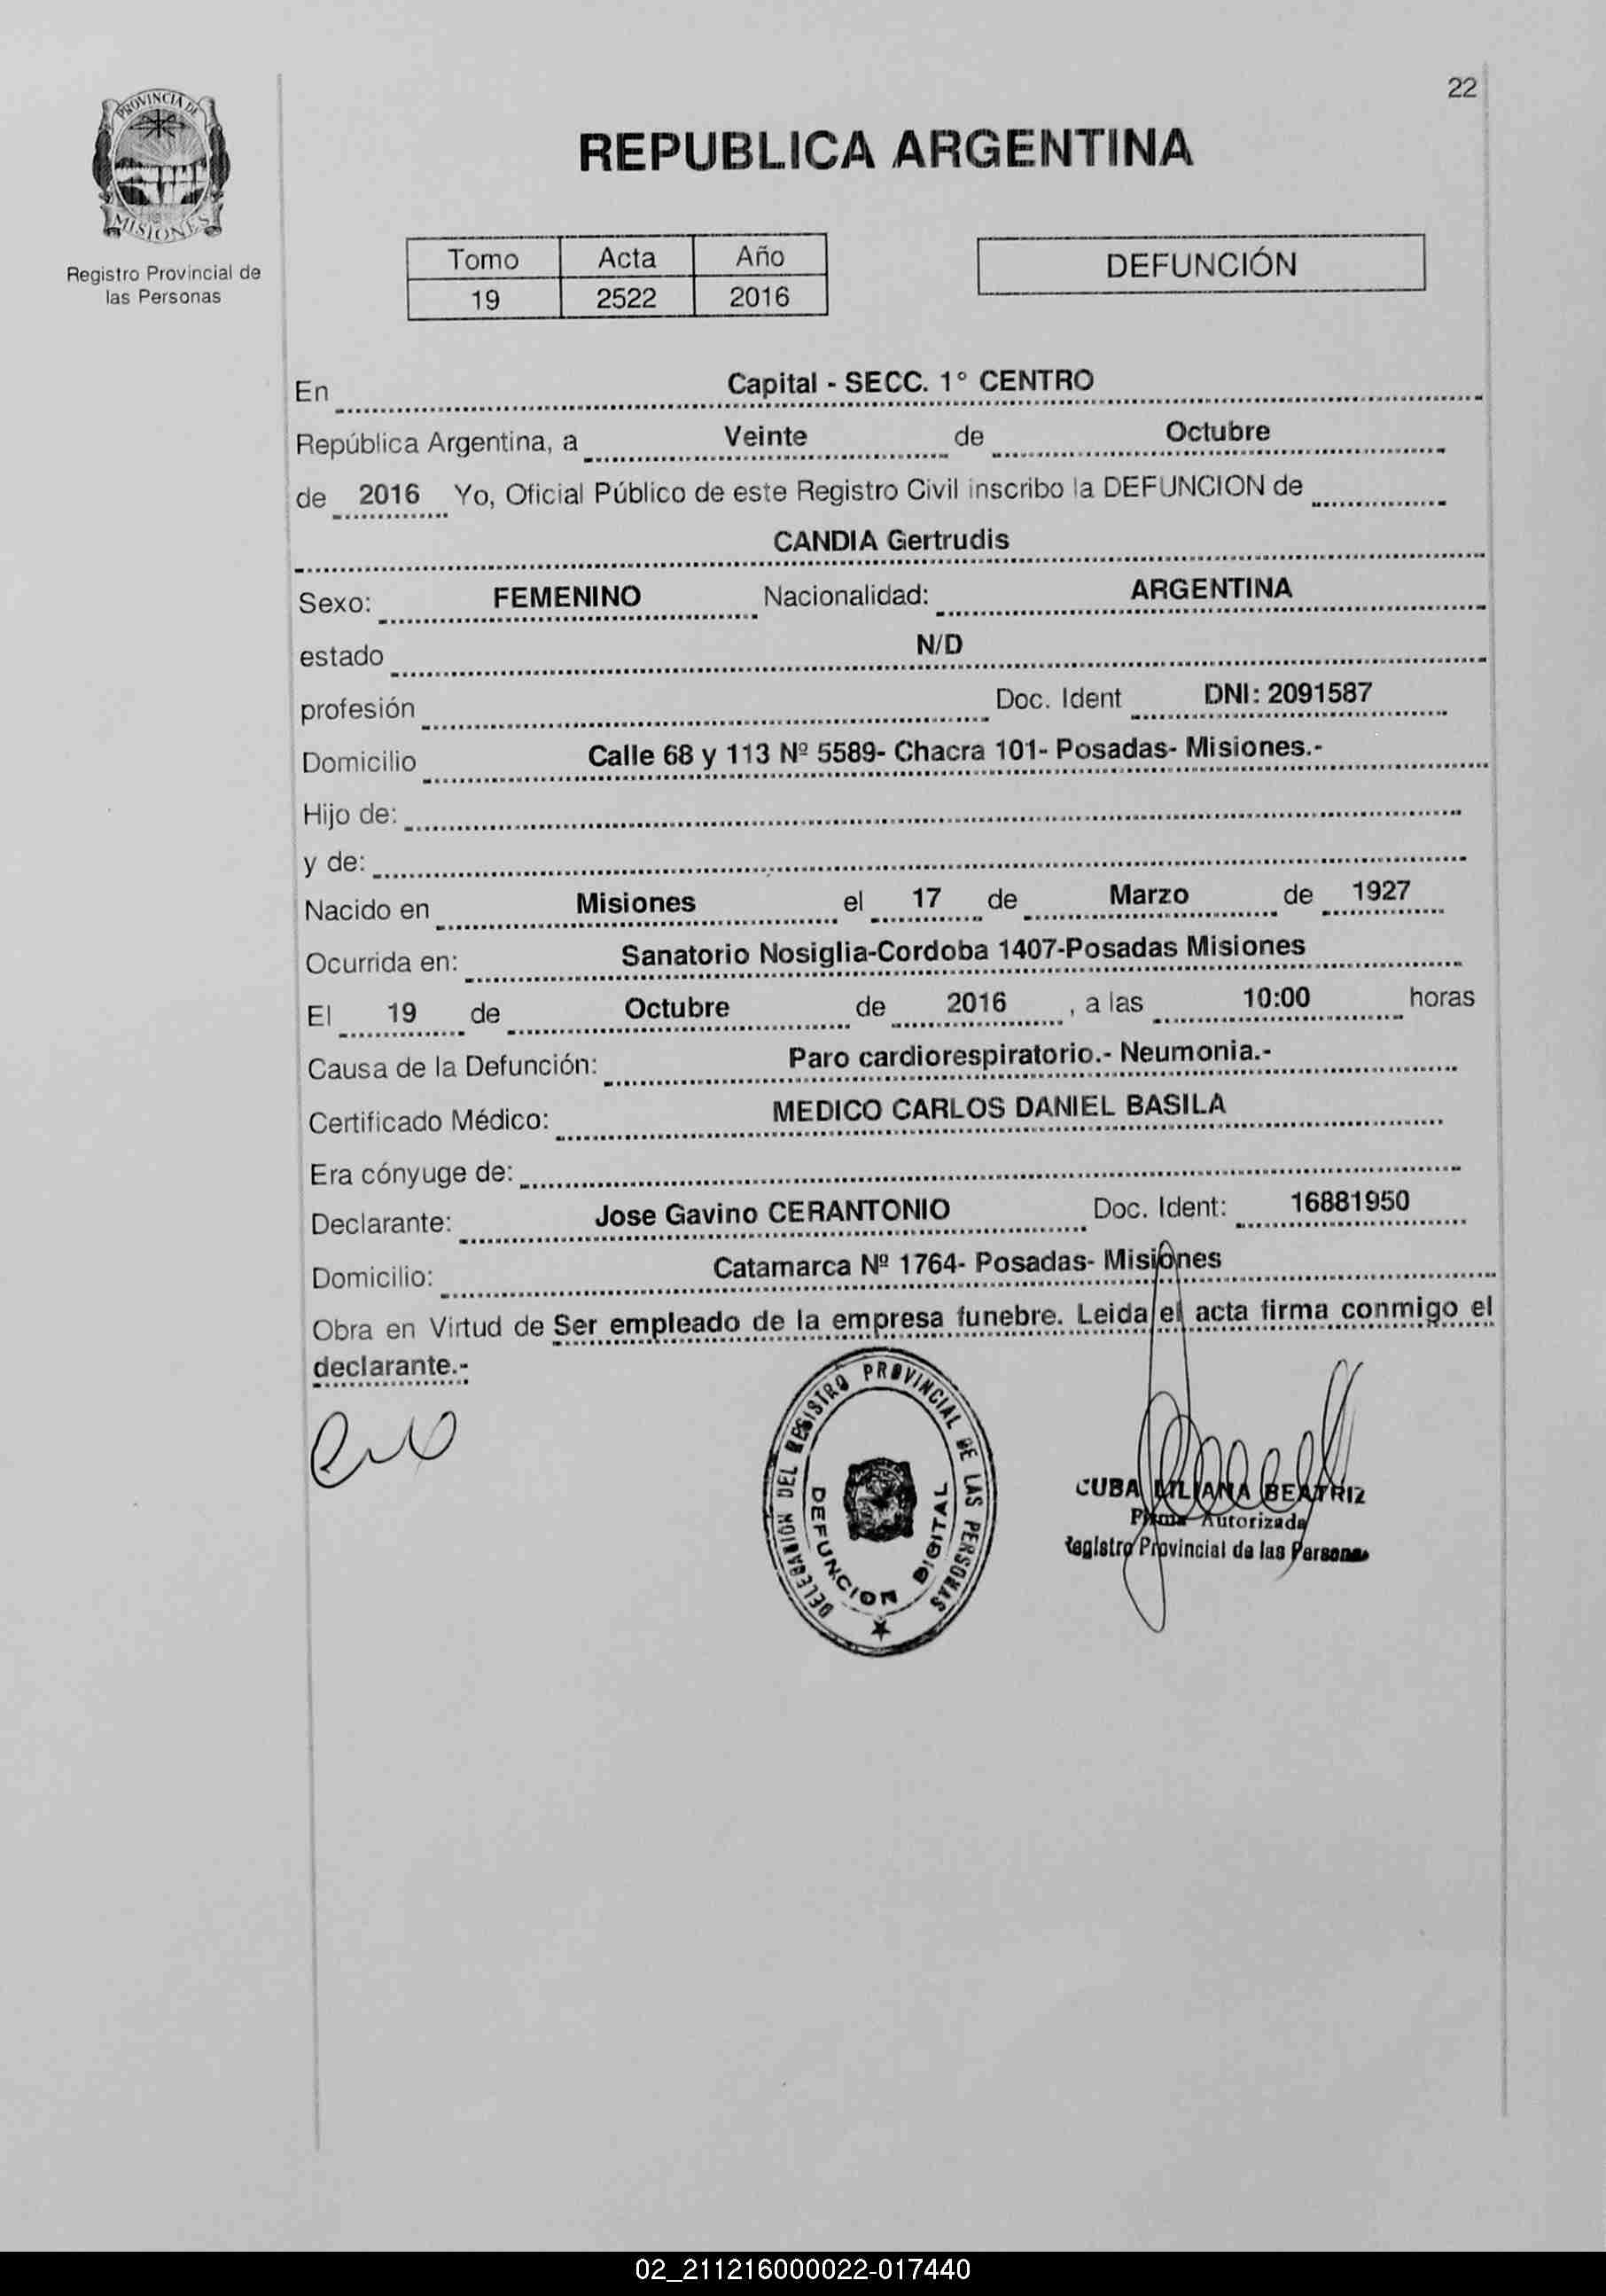 22
PROVINCIA DE
MISIONES
Registro Provincial de
las Personas
REPUBLICA ARGENTINA
Tomo Acta Año
19 2522 2016
DEFUNCIÓN
En Capital - SECC. 1° CENTRO
República Argentina, a Veinte de Octubre
de 2016 Yo, Oficial Público de este Registro Civil inscribo la DEFUNCION de
CANDIA Gertrudis
Sexo: FEMENINO Nacionalidad: ARGENTINA
estado N/D
profesión Doc. Ident DNI: 2091587
Domicilio Calle 68 y 113 Nº 5589- Chacra 101- Posadas- Misiones.-
Hijo de:
y de:
Nacido en Misiones el 17 de Marzo de 1927
Ocurrida en: Sanatorio Nosiglia-Cordoba 1407-Posadas Misiones
El 19 de Octubre de 2016 , a las 10:00 horas
Causa de la Defunción: Paro cardiorespiratorio.- Neumonia.-
Certificado Médico: MEDICO CARLOS DANIEL BASILA
Era cónyuge de:
Declarante: Jose Gavino CERANTONIO Doc. Ident: 16881950
Domicilio: Catamarca Nº 1764- Posadas- Misiones
Obra en Virtud de Ser empleado de la empresa funebre. Leida el acta firma conmigo el
declarante.-
DELEGACION DEL REGISTRO PROVINCIAL DE LAS PERSONAS
DEFUNCION DIGITAL
CUBA LILIANA BEATRIZ
Firma Autorizada
Registro Provincial de las Personas
02_211216000022-017440